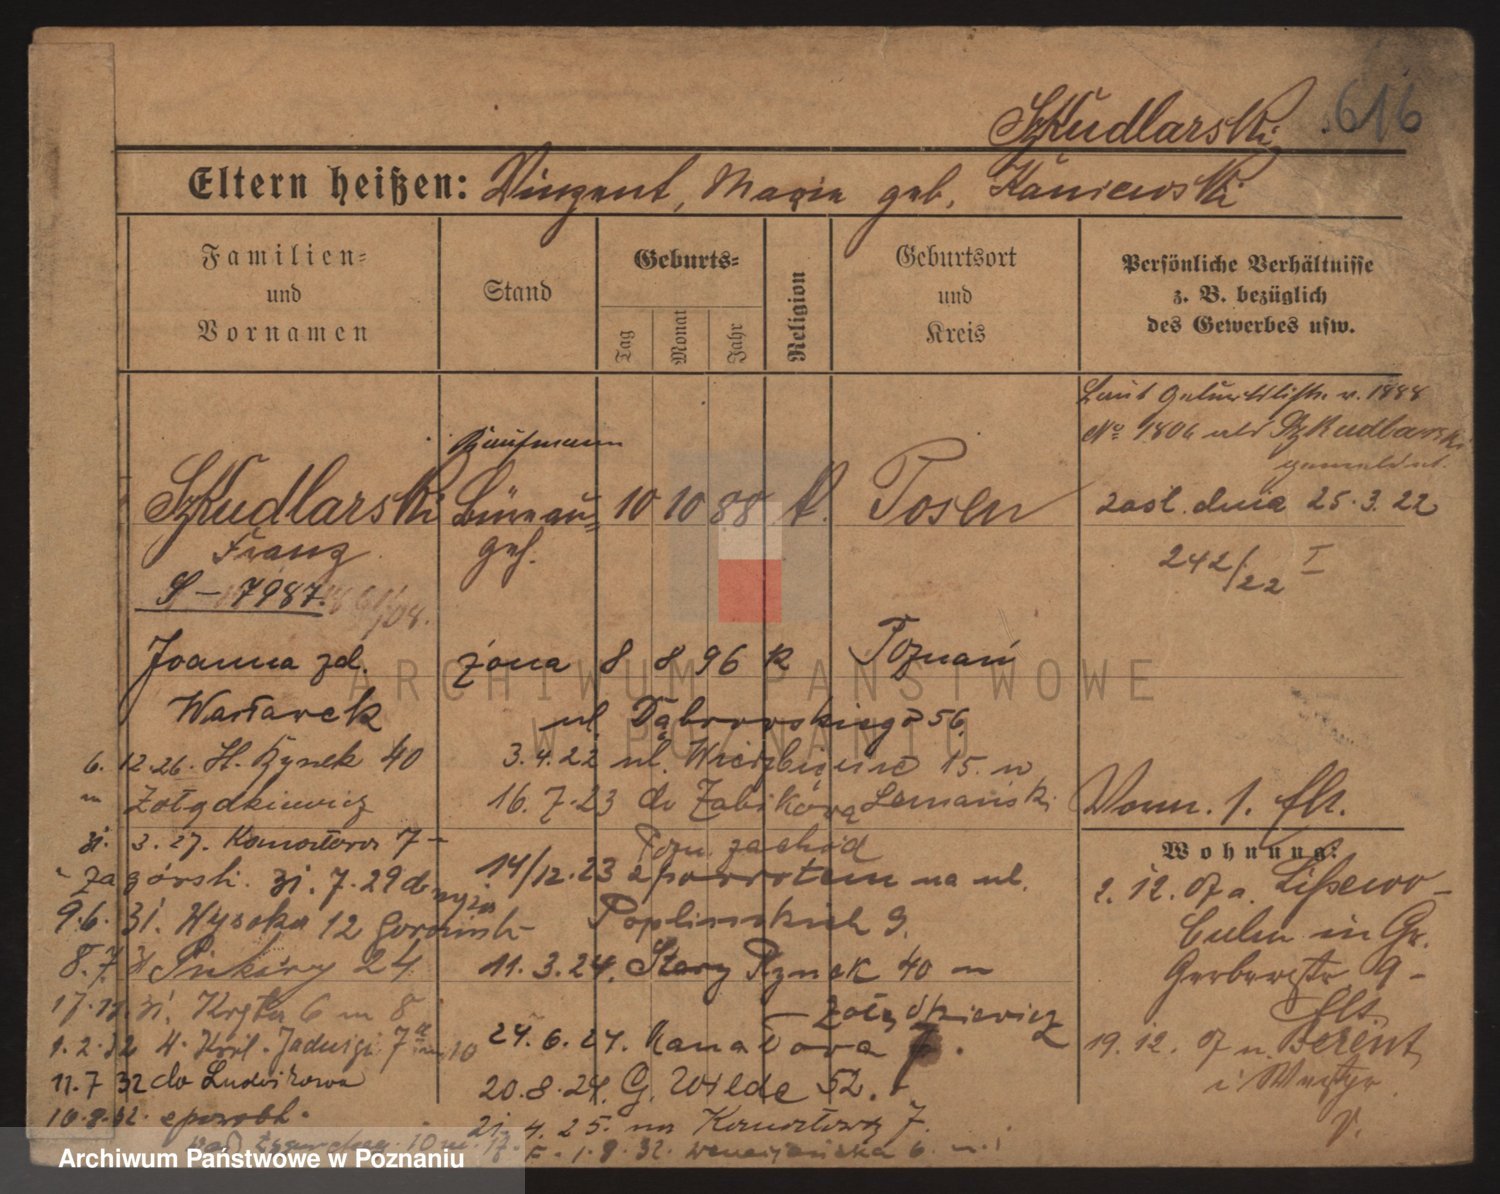 Szkudlarski 616
Eltern heißen: Vinzent, Marie geb. Kaniewski
Familien- und Vornamen
Stand
Geburts-
Tag
Monat
Jahr
Religion
Geburtsort und Kreis
Persönliche Verhältnisse
z. B. bezüglich
des Gewerbes usw.
Laut Geburtsliste v. 1888
No 1806 als Szkudlarski
gemeldet.
Kaufmann
Szkudlarski Büreau- 10 10 88 k. Posen
Franz geh.
zaśl. dnia 25.3.22
242/22 I
S-7987.
Joanna zd. żona 8 8 96 k Poznań
Wartarek
ul. Dąbrowskiego 56
6. 12.26. St. Rynek 40
3.4.22 ul. Wierzbięcice 15. n
Żołądkiewicz
16.7.23 do Żabikowa Lemański
Pozn. zachód
3. 27. Komortowa 7
14/12.23 z powrotem na ul.
Zagórski. 31.7.29 do
9.6. 31. Wysoka 12
Poplińskich 9.
8.7. Piekary 24
11.3.24. Stary Rynek 40 n
Żołądkiewicz
17.11.31. Kręta 6 m 8
24.6.24. Kanałowa 7.
1.2.32 H. Król. Jadwigi 7 m 10
11.7 32 do Ludwikowa
20.8.24. G. Wilde 52.
10.8.32. z powrotem
21.4.25. na 7.
1.8.32. 6
Vorm. 1. flt.
Wohnung:
2. 12. 07 a. Lissewo-
Culm in Gr.
Gerberstr 9-
flt
19. 12. 07 n. Berent
i Westpr.
V.
ARCHIWUM PAŃSTWOWE
W POZNANIU
Archiwum Państwowe w Poznaniu